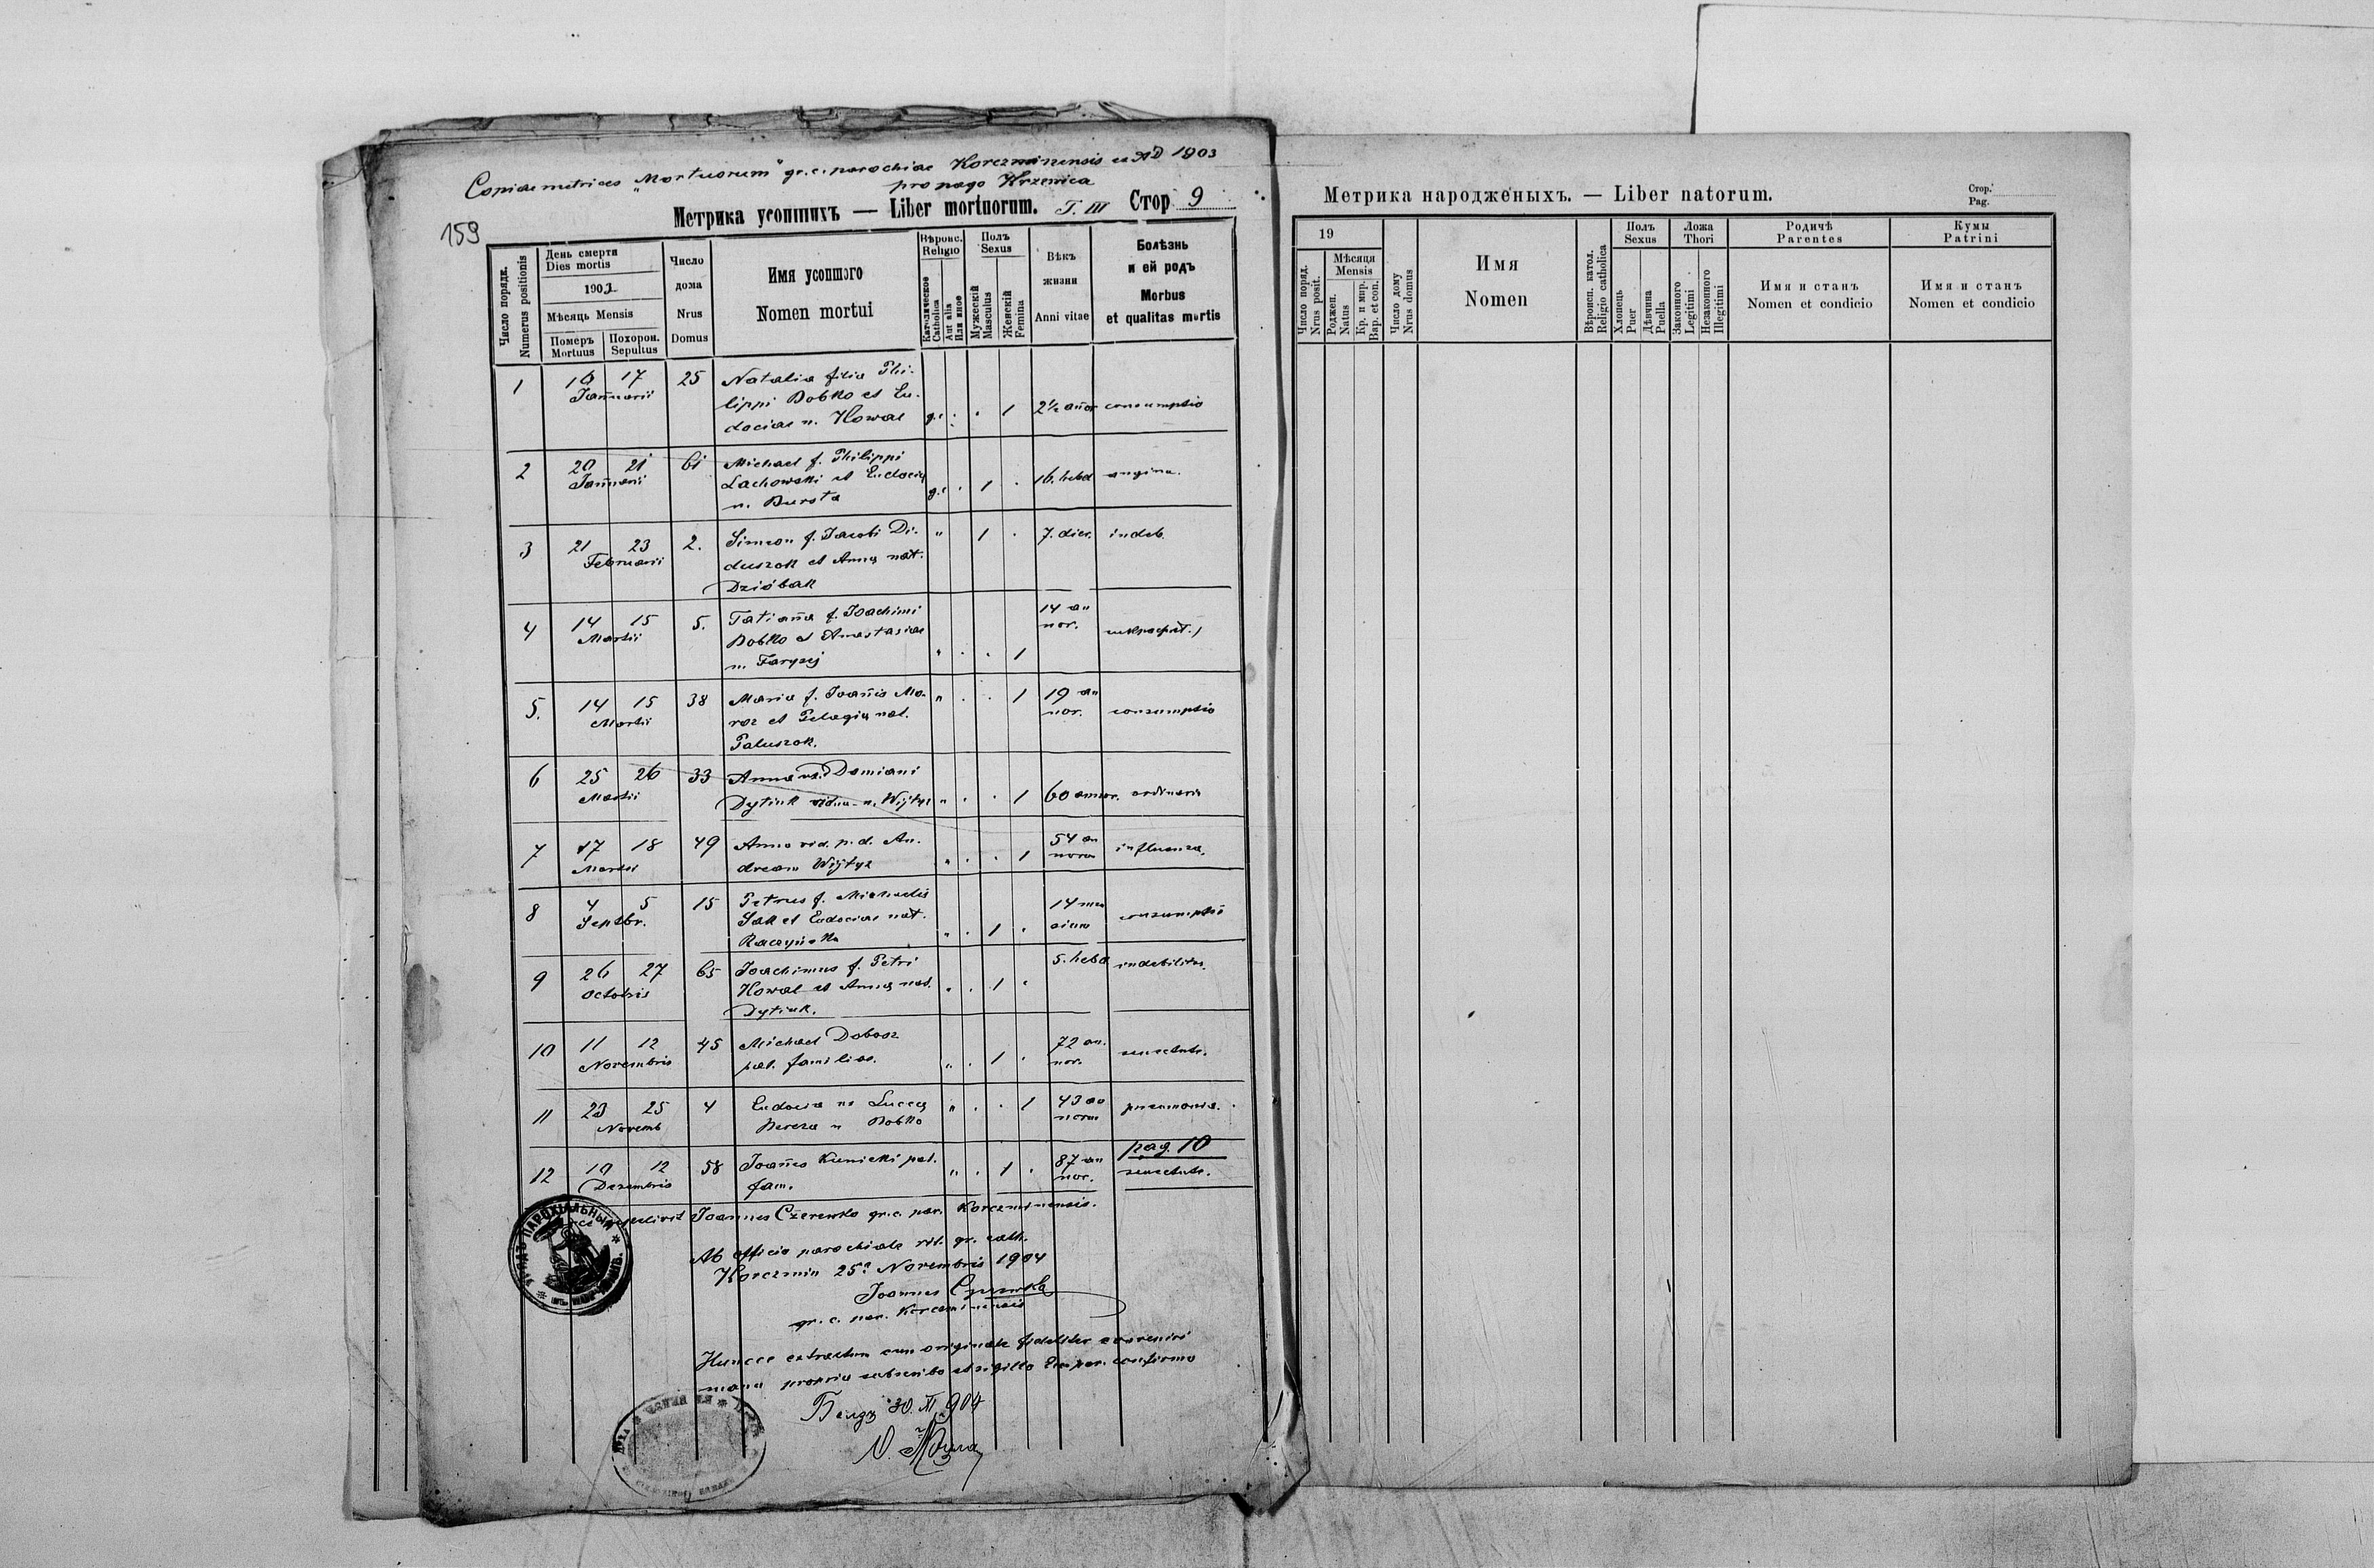 Copia metrices "Mortuorum" gr. c. parochiae Korczminensis ex AD 1903
pro pago Krzewica
159
Метрика усопшихъ — Liber mortuorum. T. III Стор 9
Число порядк. Numerus positionis
День смерти Dies mortis
1903
Мѣсяць Mensis
Померъ Mortuus
Похорон. Sepultus
Число дома Nrus Domus
Имя усопшого Nomen mortui
Вѣроис. Religio
Католическое Catholica
Aut alia Или иное
Полъ Sexus
Мужескій Masculus
Женскій Femina
Вѣкъ жизни Anni vitae
Болѣзнь и ей родъ Morbus et qualitas mortis
1 16 17 Januarii 25 Natalia filia Phi-
lippi Bobko et Eu-
dociae n. Kowal g.c. 1 2½ annor consumptio
2 20 21 Januarii 61 Michael f. Philippi
Lachowski et Eudociae
n. Bursta g.c. 1 16. hebd angina.
3 21 23 Februarii 2. Simeon f. Jacobi Di-
duszok et Annae nat.
Dzióbak " 1 7. dier. indeb.
4 14 15 Martii 5. Tatiana f. Joachimi
Bobko et Anastasiae
n. Farysej " 1 14 an
nor.
5. 14 15 Martii 38 Maria f. Joannis Mo-
roz et Pelagiae nat.
Paluszok. " 1 19 an
nor. consumptio
6 25 26 Martii 33 Anna Damiani
Dytiuk vidua n. Wijtyz " 1 60 annor. ordinaria
7 17 18 Martii 49 Anna vid. p. d. An-
dream Wijtyz " 1 54 an
norum influenza.
8 4 5 Septbr. 15 Petrus f. Michaelis
Sak et Eudociae nat.
" 1 14 men
sium consumptio
9 26 27 Octobris 65 Joachimus f. Petri
Kowal et Annae nat.
Dytiuk. " 1 5. hebd indebilitas.
10 11 12 Novembris 45 Michael Dobosz
pat. familias. " 1 72 an.
nor. senectute.
11 23 25 Novemb 4 Eudocia Lucae
Bereza n Bobko " 1 43 an
norum pneumonia.
pag. 10
12 10 12 Dezembris 58 Joannes Kunicki pat.
fam. " 1 87 an
nor. senectute.
sepelivit Joannes Czerewko gr. c. par. Korczminensis.
Ab officio parochiale rit. gr. cath.
Korczmin 25a Novembris 1904
Joannes Czerewko
gr. c. par. Korczminensis
Huncce extractum cum originale fideliter convenire
manu propria subscribo et sigillo confirmo
Белзъ 30. XI 904
Метрика народженыхъ. — Liber natorum.
Стор.
Pag.
19
Число поряд. Nrus posit.
Мѣсяця Mensis
Роджен. Natus
Кр. и мир. Bap. et con.
Число дому Nrus domus
Имя Nomen
Вѣроисп. катол. Religio catholica
Полъ Sexus
Хлопець Puer
Дѣвчина Puella
Ложа Thori
Законного Legitimi
Незаконного Illegitimi
Родичѣ Parentes
Имя и станъ Nomen et condicio
Кумы Patrini
Имя и станъ Nomen et condicio